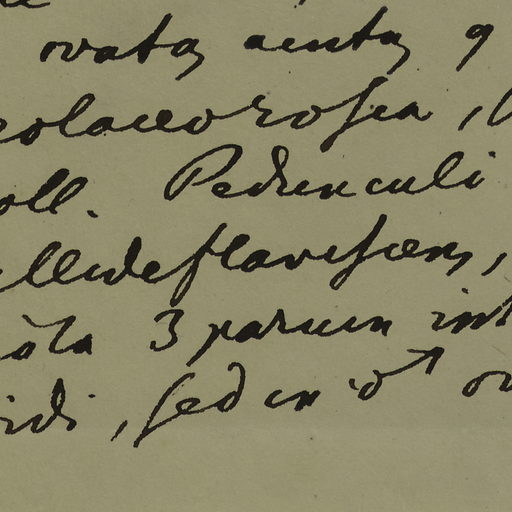 ovata acuta 9
eolaceo rosea,
oll. Pedunculi
llide flavescens,
3 parum int
idi, sed in ♂